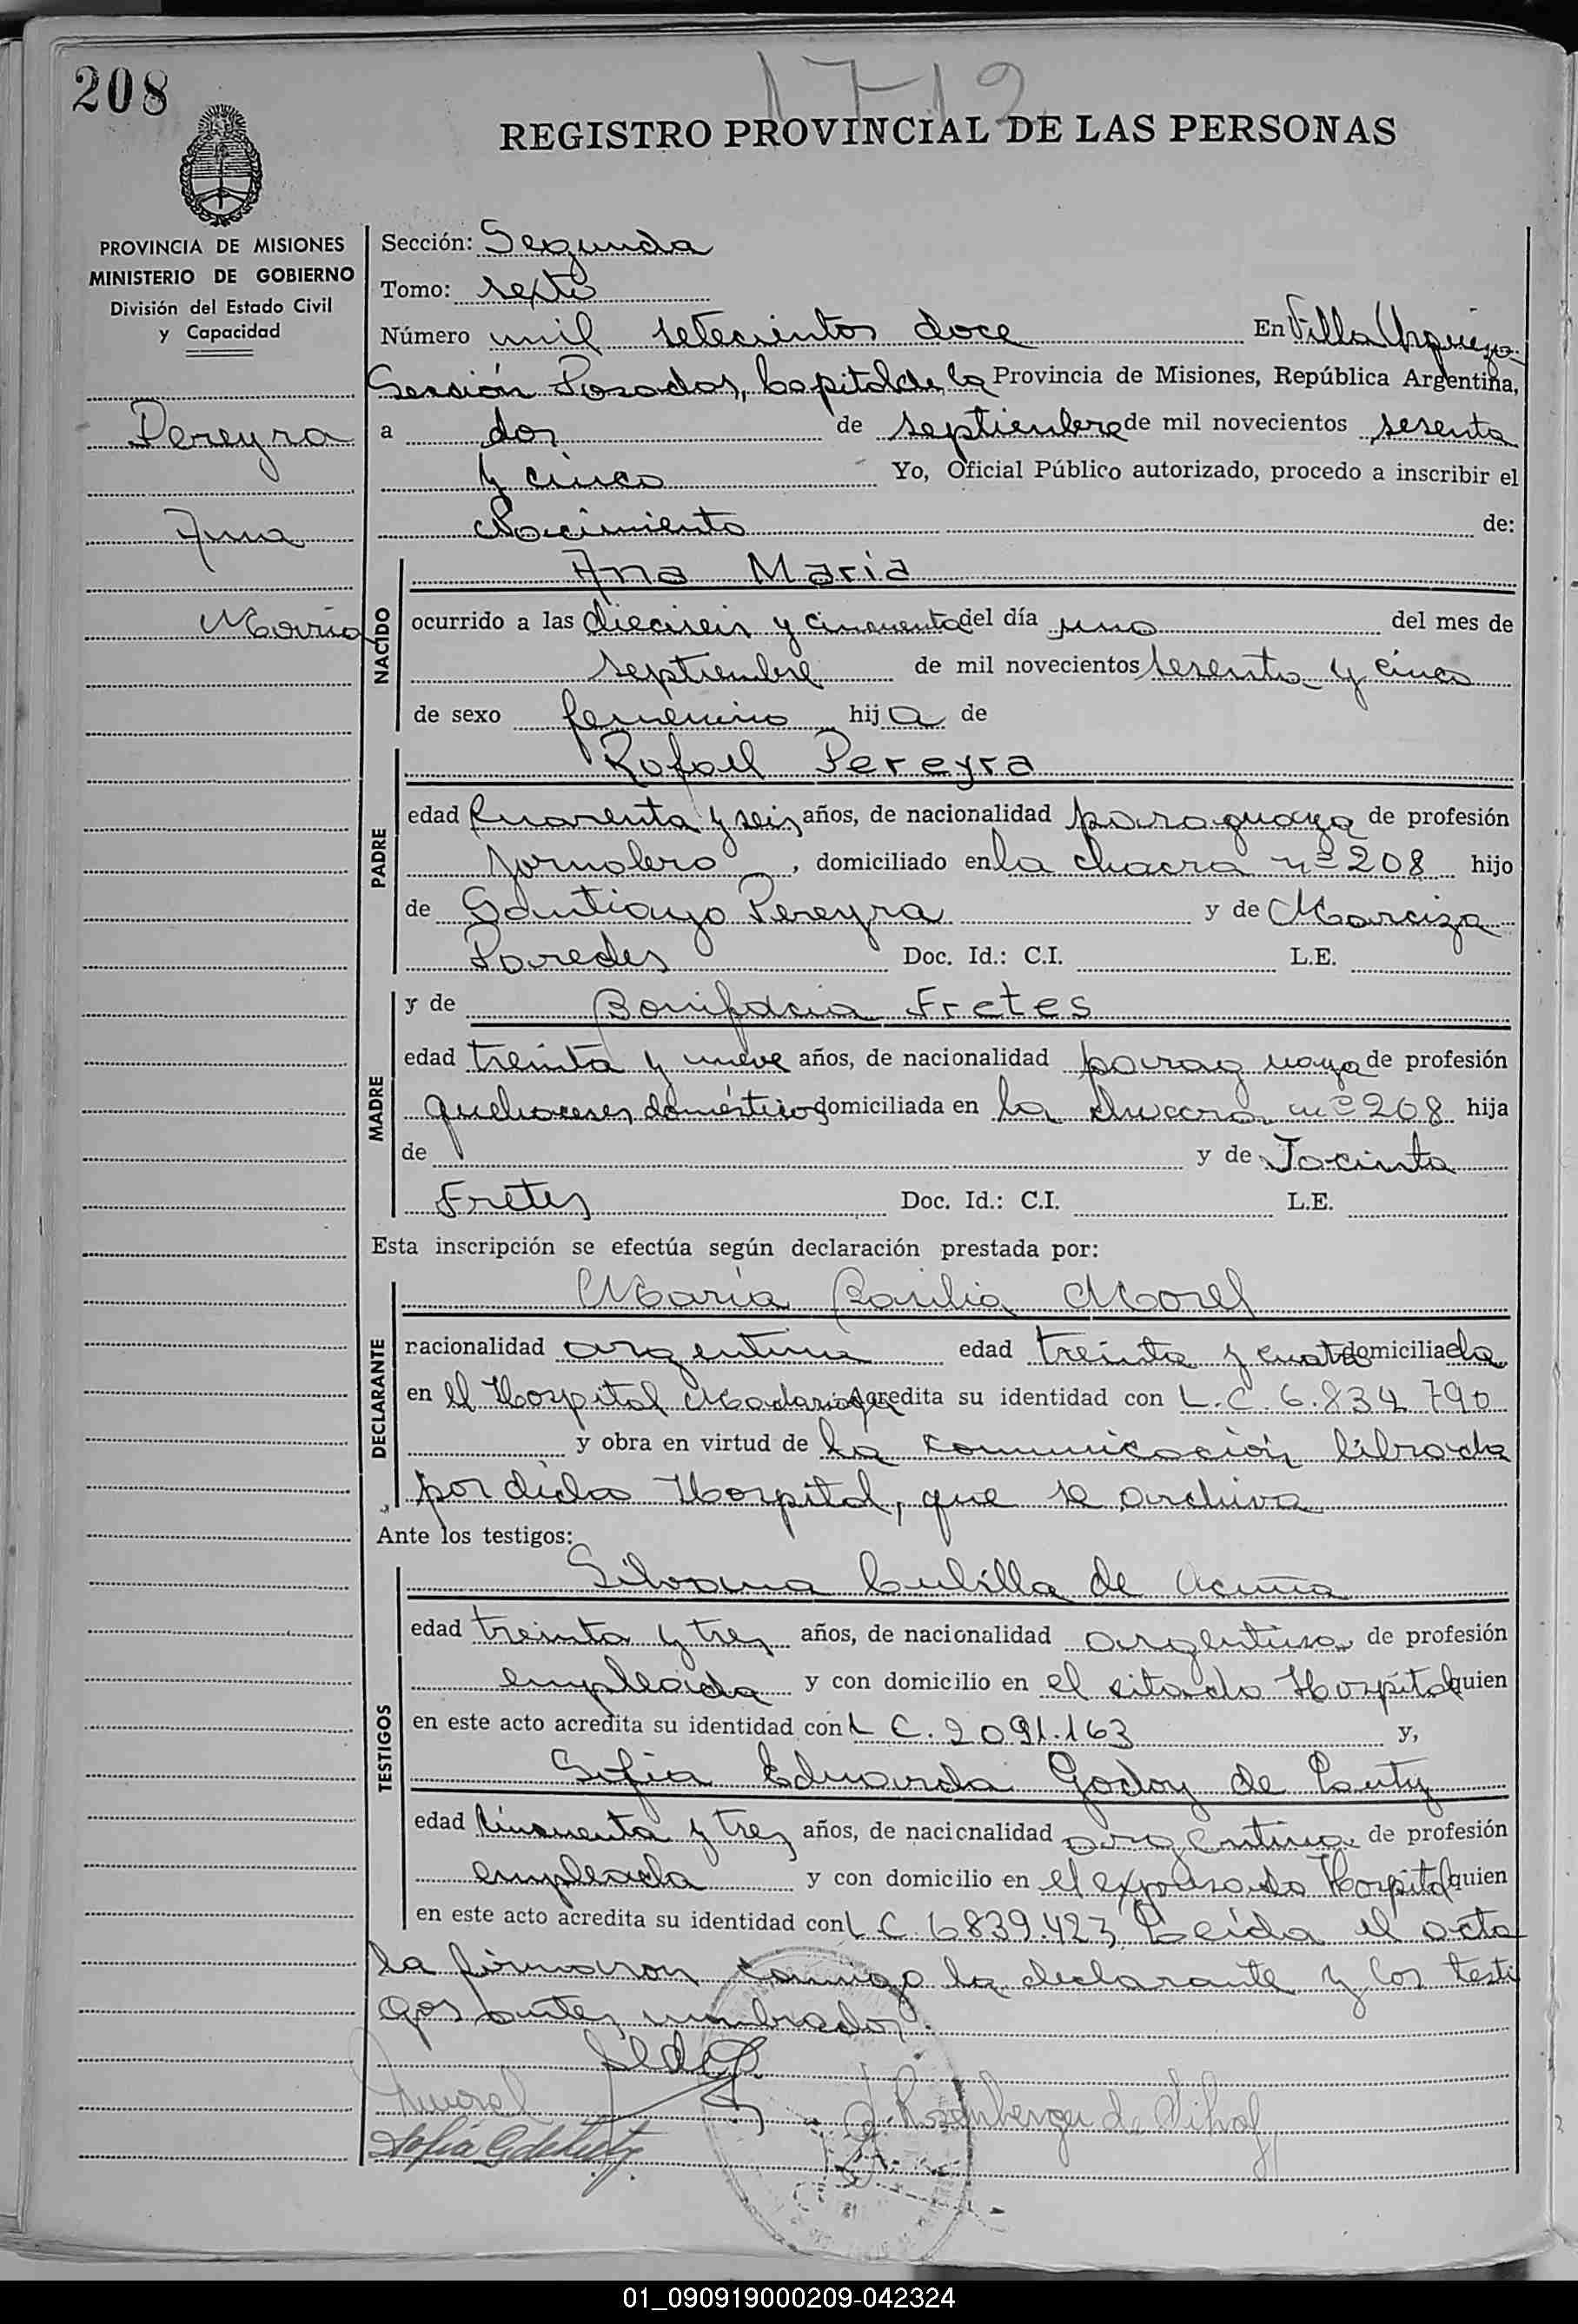 208
1712
REGISTRO PROVINCIAL DE LAS PERSONAS
PROVINCIA DE MISIONES
MINISTERIO DE GOBIERNO
División del Estado Civil
y Capacidad
Pereyra
Ana
María
Sección: Segunda
Tomo: sexto
Número mil setecientos doce En Villa Urquiza
Sección Posadas, Capital de la Provincia de Misiones, República Argentina,
a dos de septiembre de mil novecientos sesenta
y cinco Yo, Oficial Público autorizado, procedo a inscribir el
Nacimiento de:
NACIDO
Ana María
ocurrido a las dieciseis y cincuenta del día uno del mes de
septiembre de mil novecientos sesenta y cinco
de sexo femenino hija de
PADRE
Rafael Pereyra
edad Cuarenta y seis años, de nacionalidad paraguaya de profesión
Jornalero, domiciliado en la chacra nº 208 hijo
de Santiago Pereyra y de Marciza
Paredes Doc. Id.: C.I. L.E.
MADRE
y de Bonifacia Fretes
edad treinta y nueve años, de nacionalidad paraguaya de profesión
quehaceres domésticos domiciliada en la chacra nº 208 hija
de y de Jacinta
Fretes Doc. Id.: C.I. L.E.
Esta inscripción se efectúa según declaración prestada por:
DECLARANTE
María Basilia Morel
nacionalidad argentina edad treinta y cuatro domiciliada
en el Hospital Madariaga Acredita su identidad con L.C. 6.834.790
y obra en virtud de la comunicación librada
por dicho Hospital, que se archiva
Ante los testigos:
TESTIGOS
Silvana Cubilla de Acuña
edad treinta y tres años, de nacionalidad argentina de profesión
empleada y con domicilio en el citado Hospital quien
en este acto acredita su identidad con L C. 2091.163 y,
Sofía Eduarda Godoy de Peuty
edad Cincuenta y tres años, de nacionalidad argentina de profesión
empleada y con domicilio en el expresado Hospital quien
en este acto acredita su identidad con L C. 6839.423 Leída el acta
la firmaron conmigo la declarante y los testi
gos antes nombrados.
Sofía G de Peuty
01_090919000209-042324